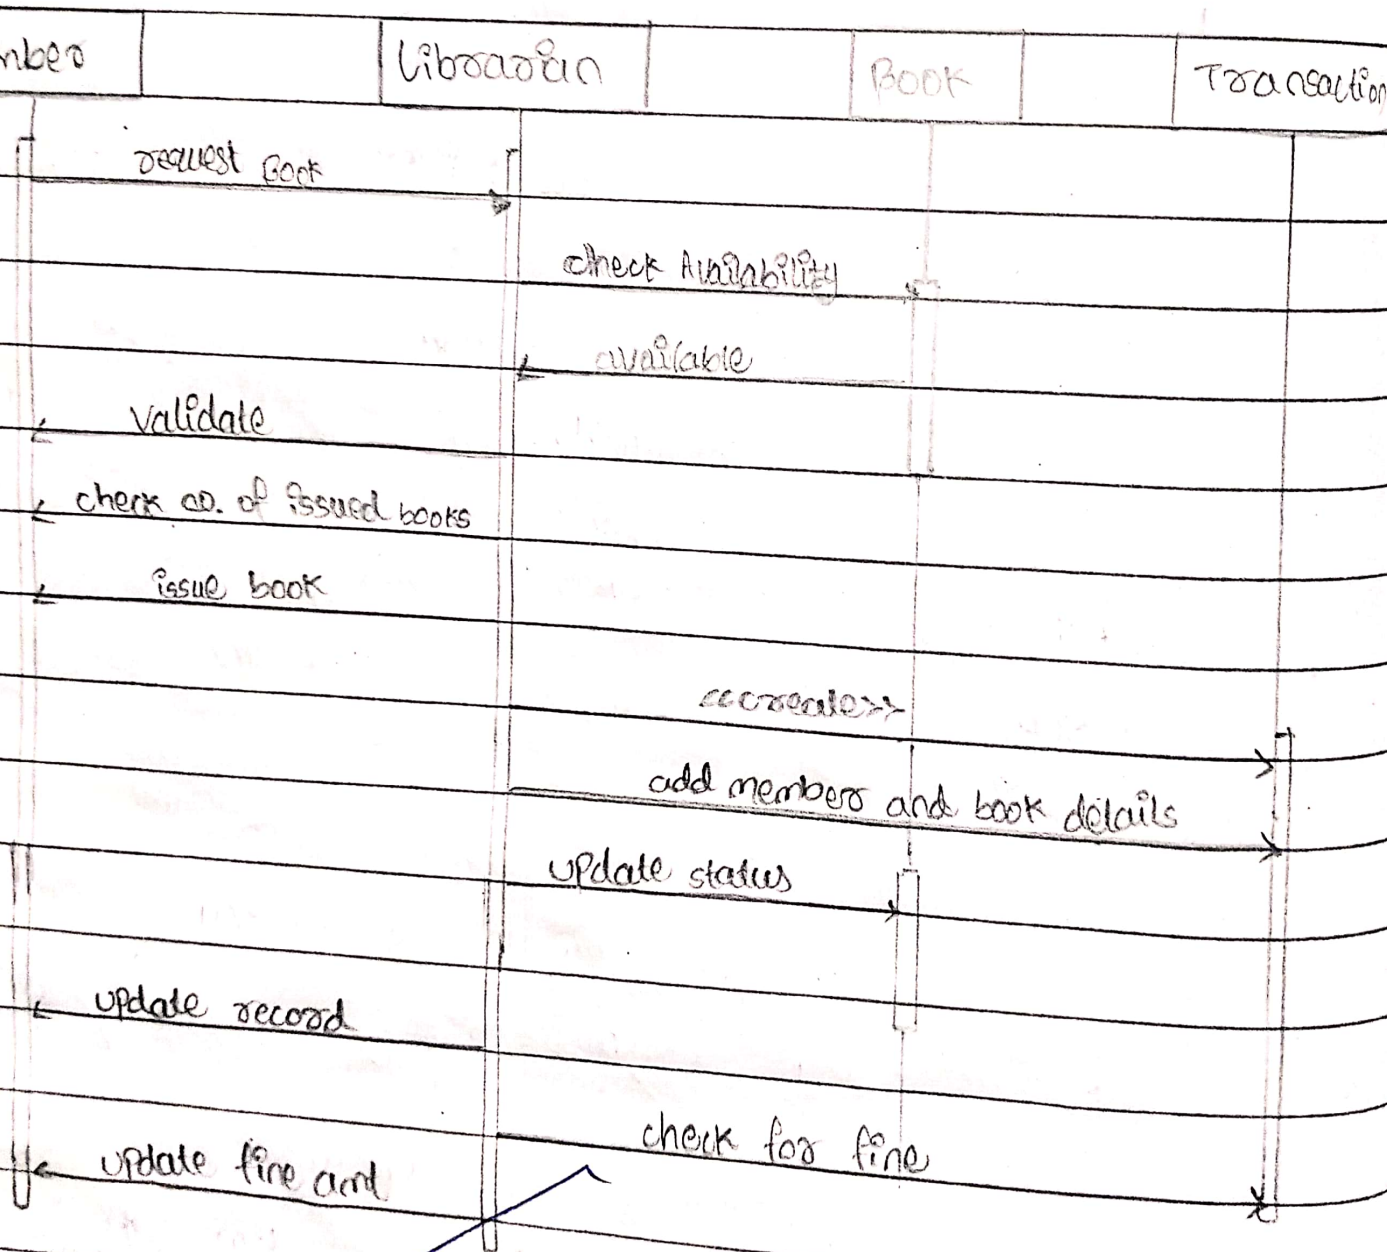 mber Librarian Book Transaction
request Book
check Availability
available
validate
check no. of issued books
issue book
<<create>>
add member and book details
update status
update record
check for fine
update fine amt